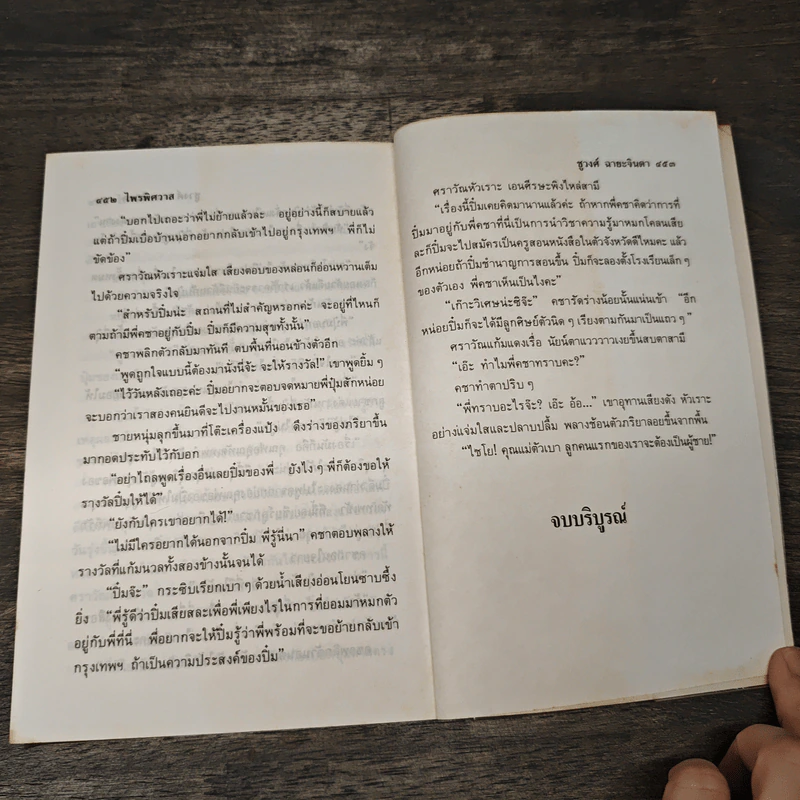 ๔๕๒ ไพรพิศวาส
"บอกไปเถอะว่าพี่ไม่ย้ายแล้วละ อยู่อย่างนี้ก็สบายแล้ว
แต่ถ้าปิ่มเบื่อบ้านนอกอยากกลับเข้าไปอยู่กรุงเทพฯ พี่ก็ไม่
ขัดข้อง"
ศราวัณหัวเราะแจ่มใส เสียงตอบของหล่อนก็อ่อนหวานเต็ม
ไปด้วยความจริงใจ
"สำหรับปิ่มน่ะ สถานที่ไม่สำคัญหรอกค่ะ จะอยู่ที่ไหนก็
ตามถ้ามีพี่คชาอยู่กับปิ่ม ปิ่มก็มีความสุขทั้งนั้น"
คชาพลิกตัวกลับมาทันที ตบพื้นที่นอนข้างตัวอีก
"พูดถูกใจแบบนี้ต้องมานั่งนี่จ้ะ จะให้รางวัล!" เขาพูดยิ้ม ๆ
"ไว้วันหลังเถอะค่ะ ปิ่มอยากจะตอบจดหมายพี่ปุ้มสักหน่อย
จะบอกว่าเราสองคนยินดีจะไปงานหมั้นของเธอ"
ชายหนุ่มลุกขึ้นมาที่โต๊ะเครื่องแป้ง ดึงร่างของภริยาขึ้น
มากอดประทับไว้กับอก
"อย่าไถลพูดเรื่องอื่นเลยปิ่มของพี่ ยังไง ๆ พี่ก็ต้องขอให้
รางวัลปิ่มให้ได้"
"ยังกับใครเขาอยากได้!"
"ไม่มีใครอยากได้นอกจากปิ่ม พี่รู้นี่นา" คชาตอบพลางให้
รางวัลที่แก้มนวลทั้งสองข้างนั้นจนได้
"ปิ่มจ๊ะ" กระซิบเรียกเบา ๆ ด้วยน้ำเสียงอ่อนโยนซาบซึ้ง
ยิ่ง "พี่รู้ดีว่าปิ่มเสียสละเพื่อพี่เพียงไรในการที่ยอมมาหมกตัว
อยู่กับพี่ที่นี่ พี่อยากจะให้ปิ่มรู้ว่าพี่พร้อมที่จะขอย้ายกลับเข้า
กรุงเทพฯ ถ้าเป็นความประสงค์ของปิ่ม"
ชูวงศ์ ฉายะจินดา ๔๕๓
ศราวัณหัวเราะ เอนศีรษะพิงไหล่สามี
"เรื่องนี้ปิ่มเคยคิดมานานแล้วค่ะ ถ้าหากพี่คชาคิดว่าการที่
ปิ่มมาอยู่กับพี่คชาที่นี่เป็นการนำวิชาความรู้มาหมกโคลนเสีย
ละก็ปิ่มจะไปสมัครเป็นครูสอนหนังสือในตัวจังหวัดดีไหมคะ แล้ว
อีกหน่อยถ้าปิ่มชำนาญการสอนขึ้น ปิ่มก็จะลองตั้งโรงเรียนเล็ก ๆ
ของตัวเอง พี่คชาเห็นเป็นไงคะ"
"เก๊าะวิเศษน่ะซิจ๊ะ" คชารัดร่างน้อยนั้นแน่นเข้า "อีก
หน่อยปิ่มก็จะได้มีลูกศิษย์ตัวนิด ๆ เรียงตามกันมาเป็นแถว ๆ"
ศราวัณแก้มแดงเรื่อ นัยน์ตาแวววาวเงยขึ้นสบตาสามี
"เอ๊ะ ทำไมพี่คชาทราบคะ?"
คชาทำตาปริบ ๆ
"พี่ทราบอะไรจ๊ะ? เอ๊ะ อ้อ..." เขาอุทานเสียงดัง หัวเราะ
อย่างแจ่มใสและปลาบปลื้ม พลางช้อนตัวภริยาลอยขึ้นจากพื้น
"ไชโย! คุณแม่ตัวเบา ลูกคนแรกของเราจะต้องเป็นผู้ชาย!"
จบบริบูรณ์